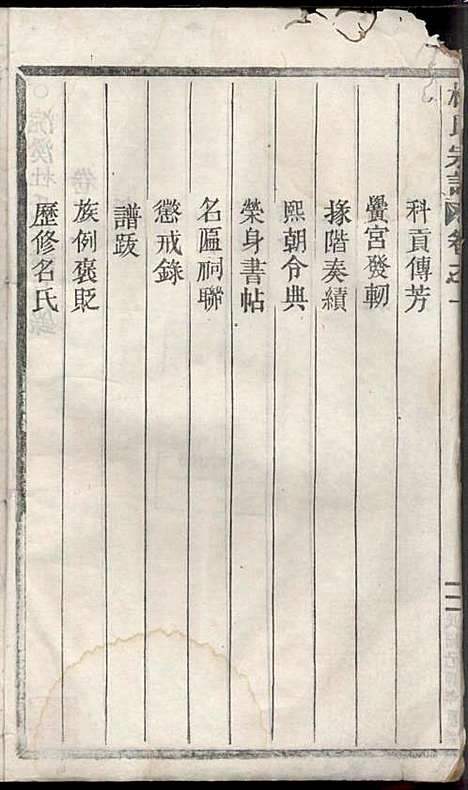 杜氏宗譜 卷之一
科貢傳芳
黌宮發軔
掾階奏績
熙朝令典
榮身書帖
名匾祠聯
懲戒錄
譜跋
族例褒貶
歷修名氏
二